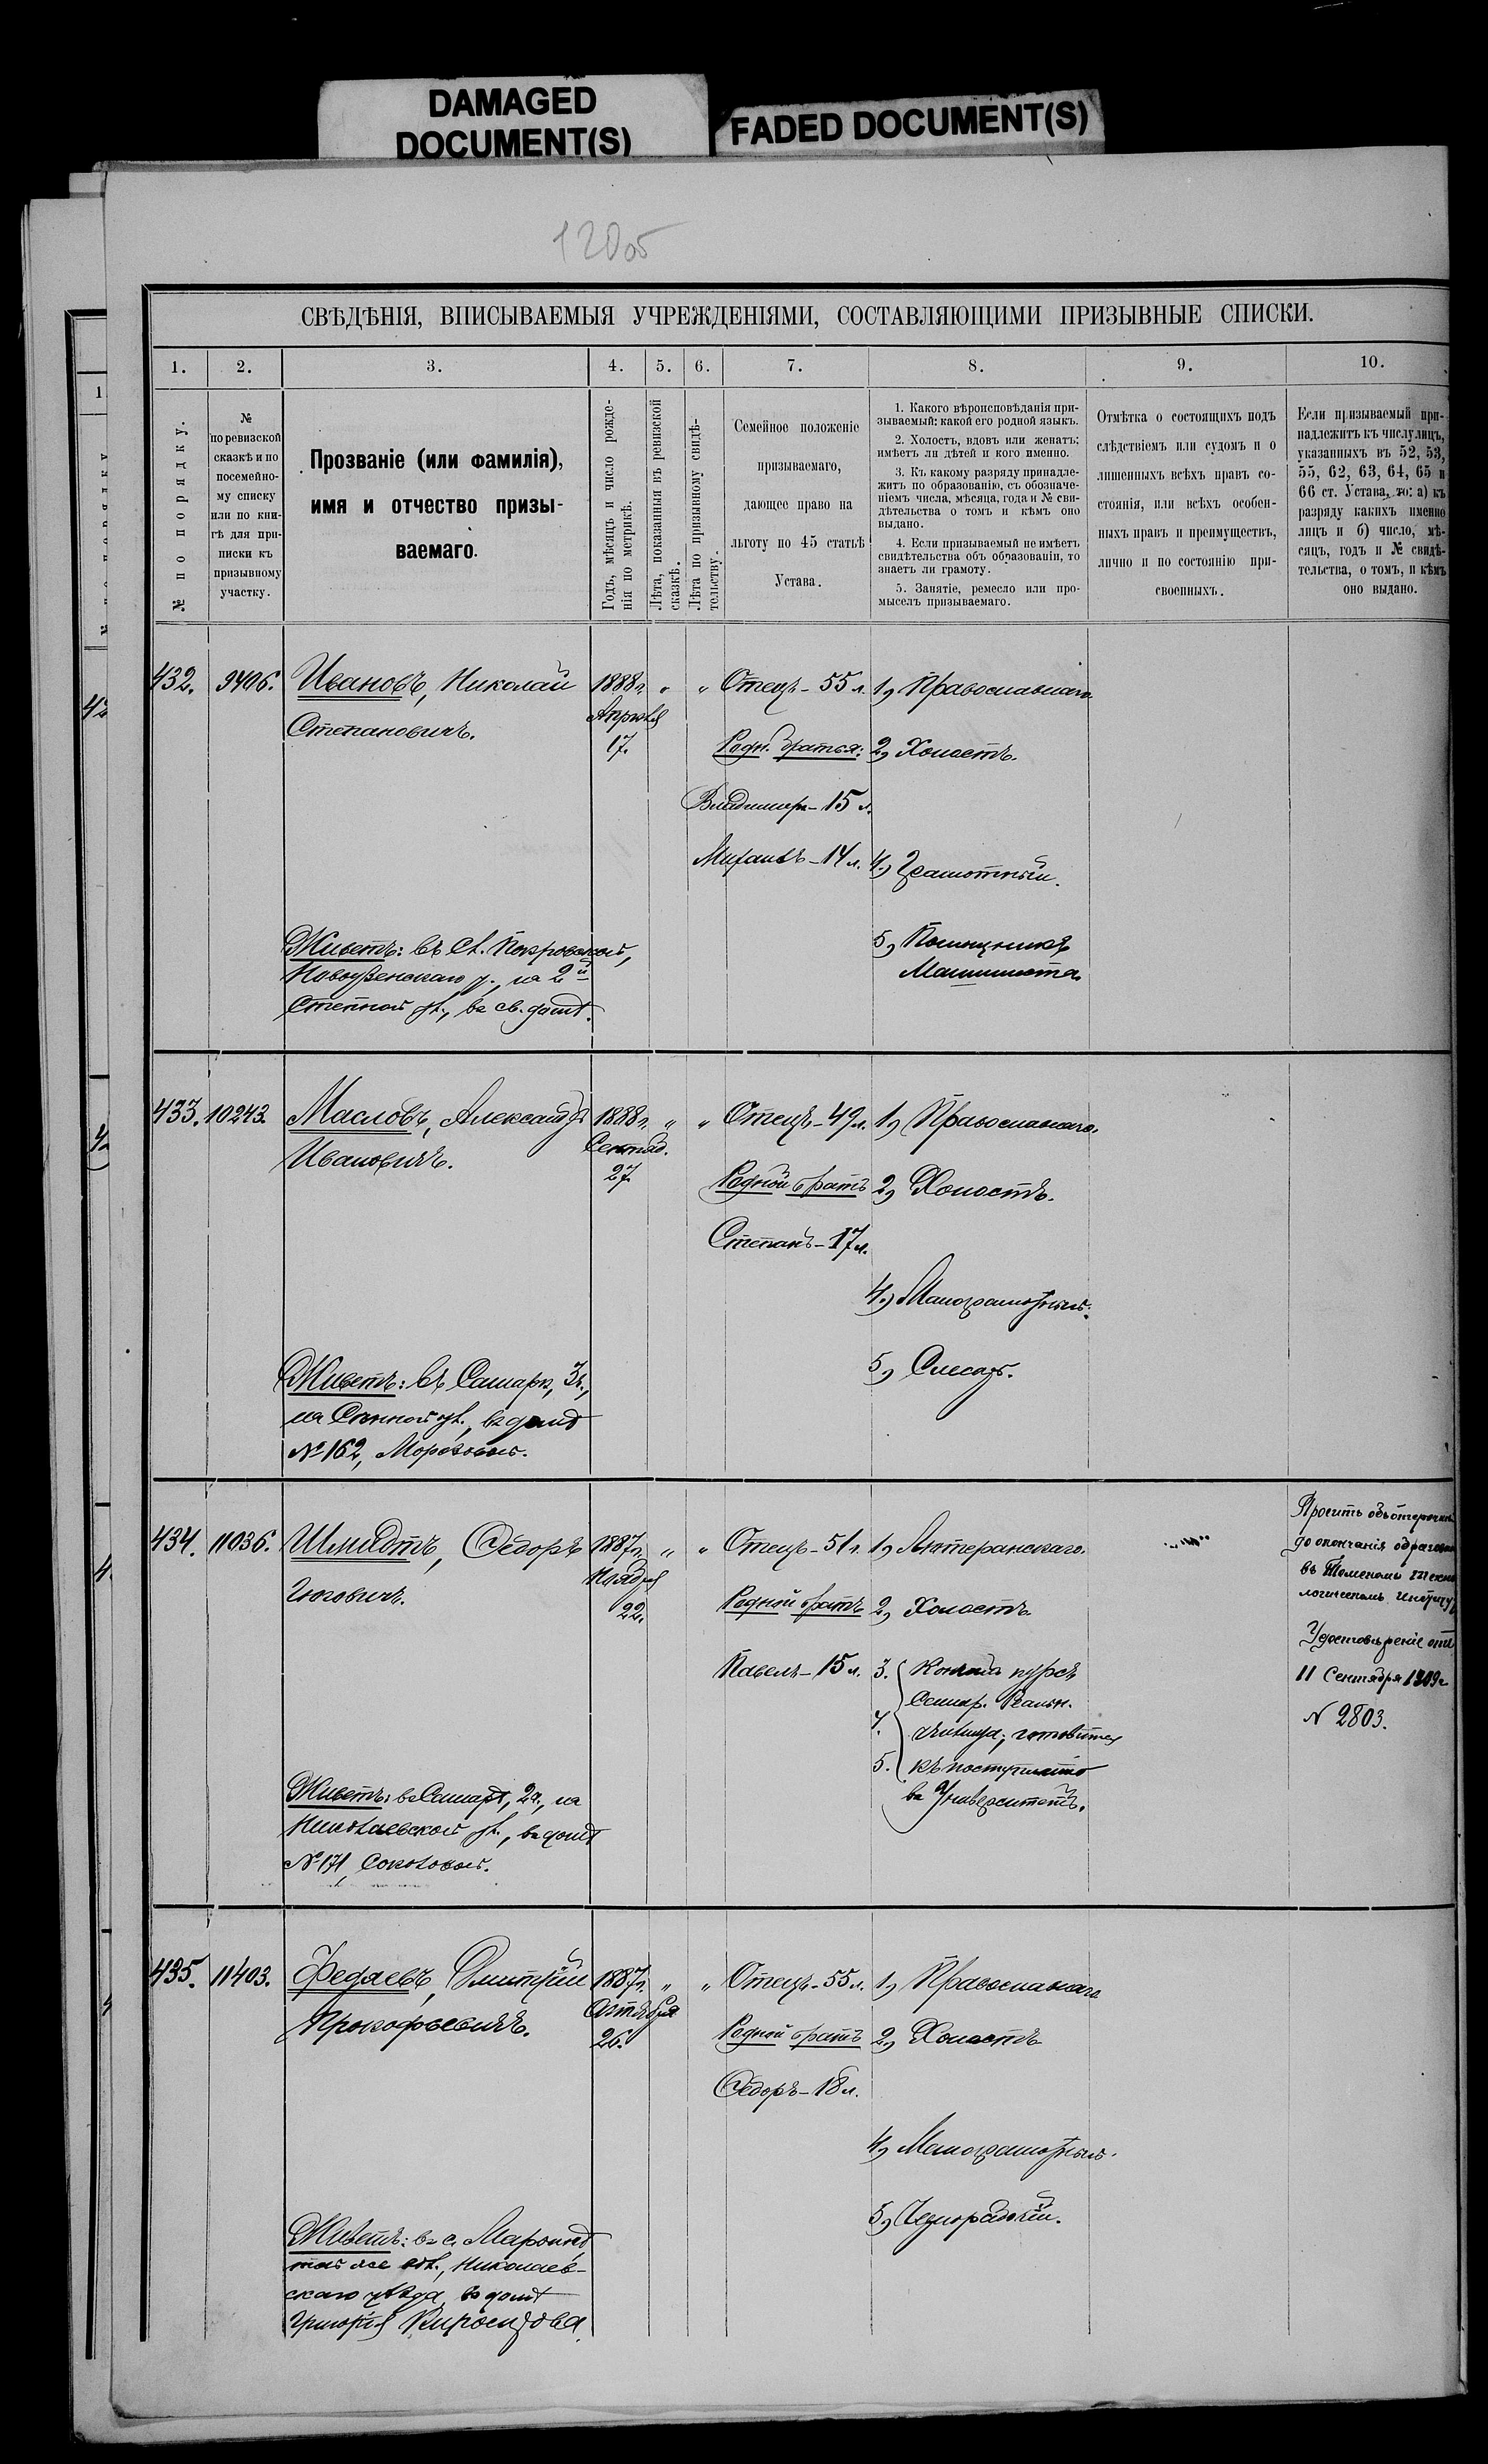 DAMAGED
DOCUMENT(S)
FADED DOCUMENT(S)
СВѢДѢНІЯ, ВПИСЫВАЕМЫЯ УЧРЕЖДЕНІЯМИ, СОСТАВЛЯЮЩИМИ ПРИЗЫВНЫЕ СПИСКИ.
1.
2.
3.
4.
5.
6.
7.
8.
9.
10.
№ по порядку.
№
по ревизской
сказкѣ и по
посемейно-
му списку
или по кни-
гѣ для при-
писки къ
призывному
участку.
Прозваніе (или фамилія),
имя и отчество призы-
ваемаго.
Годъ, мѣсяцъ и число рожде-
нія по метрикѣ.
Лѣта, показанныя въ ревизской
сказкѣ.
Лѣта по призывному свидѣ-
тельству.
Семейное положеніе
призываемаго,
дающее право на
льготу по 45 статьѣ
Устава.
1. Какого вѣроисповѣданія при-
зываемый: какой его родной языкъ.
2. Холостъ, вдовъ или женатъ:
имѣетъ ли дѣтей и кого именно.
3. Къ какому разряду принадле-
житъ по образованію, съ обозначе-
ніемъ числа, мѣсяца, года и № сви-
дѣтельства о томъ и кѣмъ оно
выдано.
4. Если призываемый не имѣетъ
свидѣтельства объ образованіи, то
знаетъ ли грамоту.
5. Занятіе, ремесло или про-
мыселъ призываемаго.
Отмѣтка о состоящихъ подъ
слѣдствіемъ или судомъ и о
лишенныхъ всѣхъ правъ со-
стоянія, или всѣхъ особен-
ныхъ правъ и преимуществъ,
лично и по состоянію при-
своенныхъ.
Если призываемый при-
надлежитъ къ числу лицъ,
указанныхъ въ 52, 53,
55, 62, 63, 64, 65 и
66 ст. Устава, то: а) къ
разряду какихъ именно
лицъ и б) число, мѣ-
сяцъ, годъ и № свидѣ-
тельства, о томъ, и кѣмъ
оно выдано.
432. 9406. Ивановъ, Николай
Степановичъ.
1888г.
Апрѣля
17.
" "
Отецъ - 55 л.
Родн. братья:
Владимиръ - 15 л.
Михаилъ - 14 л.
1, Православнаго
2, Холостъ.
4, Грамотный.
5, Помощникъ
Машиниста
Живетъ: въ сл. Покровской,
Новоузенскаго у., на 2й
Степной ул., въ св. домѣ.
433. 10243. Масловъ, Александръ
Ивановичъ.
1888г.
Сентяб.
27
" "
Отецъ - 49 л.
Родной братъ
Степанъ - 17 л.
1, Православнаго.
2, Холостъ.
4, Малограмотный.
5, Слесарь.
Живетъ: въ Самарѣ, 3ч.,
на Сѣнной ул., въ домѣ
№ 162, Морозовой.
434. 11036. Шмидтъ, Ѳедоръ
1887г.
Ноября
22.
" "
Отецъ - 51 л.
Родной братъ
Павелъ - 15 л.
1, Лютеранскаго.
2, Холостъ.
3. Самар. Реальн.
4. училища; готовится
5. къ поступленію
въ Университетъ.
до окончанія образован
въ Томскомъ Техно
логическомъ
Удостовѣреніе отъ
11 Сентября 1909г
№ 2803.
Живетъ: въ Самарѣ, 2ч., на
Николаевской ул., въ домѣ
№ 171, Соколовой.
435. 11403. Федяевъ, Дмитрій
Прокофьевичъ.
1887г.
Октября
26.
" "
Отецъ - 55 л.
Родной братъ
Ѳедоръ - 18 л.
1, Православнаго
2, Холостъ
4, Малограмотный.
5, Чернорабочій.
Николаев-
скаго уѣзда, въ домѣ
Григорія